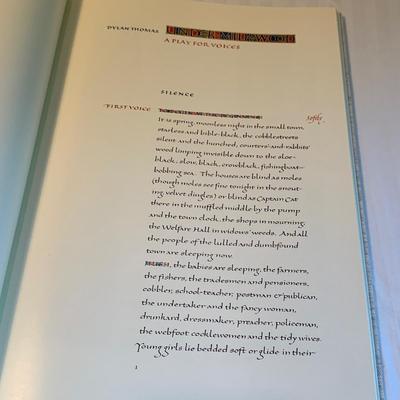 DYLAN THOMAS UNDER MILK WOOD
A PLAY FOR VOICES
SILENCE
FIRST VOICE TO BEGIN AT THE BEGINNING: softly
It is spring, moonless night in the small town,
starless and bible-black, the cobblestreets
silent and the hunched, courters'-and-rabbits'
wood limping invisible down to the sloe-
black, slow, black, crowblack, fishingboat-
bobbing sea. The houses are blind as moles
(though moles see fine tonight in the snout-
ing, velvet dingles) or blind as Captain Cat
there in the muffled middle by the pump
and the town clock, the shops in mourning,
the Welfare Hall in widows' weeds. And all
the people of the lulled and dumbfound
town are sleeping now.
HUSH, the babies are sleeping, the farmers,
the fishers, the tradesmen and pensioners,
cobbler, school-teacher, postman & publican,
the undertaker and the fancy woman,
drunkard, dressmaker, preacher, policeman,
the webfoot cocklewomen and the tidy wives.
Young girls lie bedded soft or glide in their
1